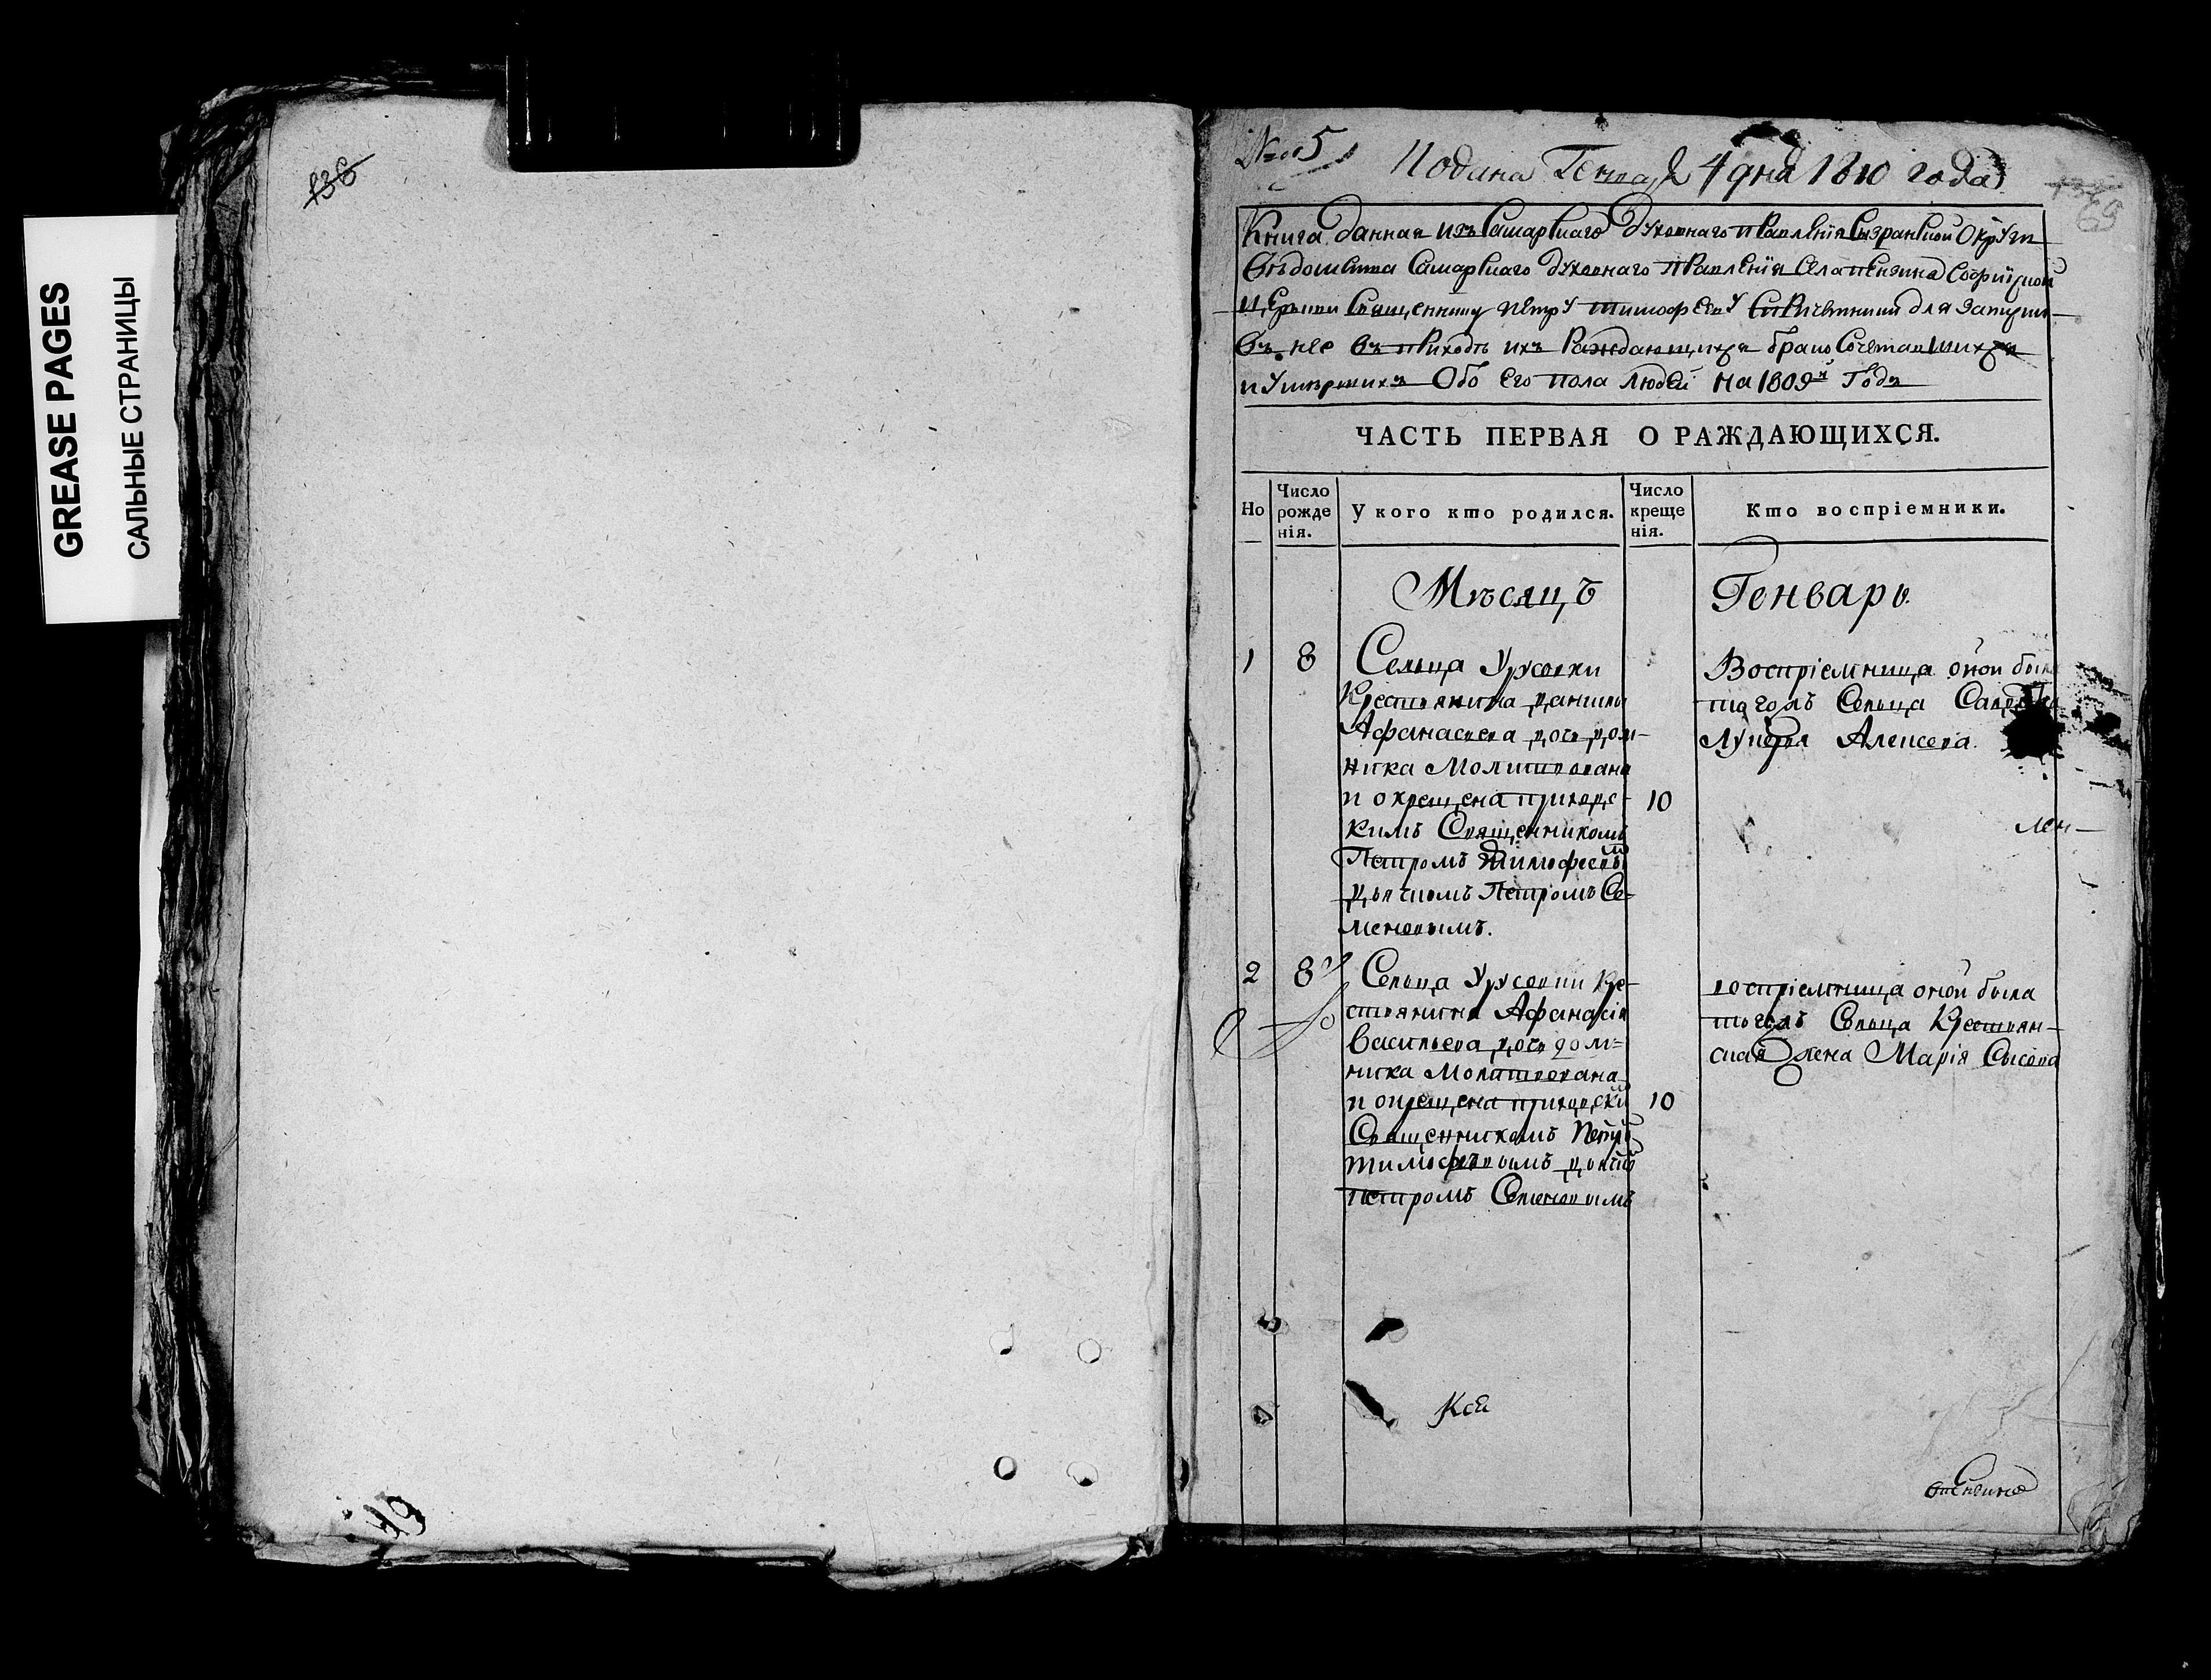 GREASE PAGES
САЛЬНЫЕ СТРАНИЦЫ
136
№ 5
Подана Генвар 4 дня 1810 года
Книга данная изъ Самарскаго духовнаго правленія Сызранской Округи
Вѣдомства Самарскаго духовнаго правленія села Пензина Софійской
церкви священнику Петру Тимофееву с причетники для записки
Въ нее въ приходѣ ихъ Раждающихся бракосочетавшихся
и умершихъ Обоего пола людей на 1809й Годъ
ЧАСТЬ ПЕРВАЯ О РАЖДАЮЩИХСЯ.
Но
Число рожденія.
У кого кто родился.
Число крещенія.
Кто воспріемники.
Мѣсяцъ
Генварь.
1
8
Сельца Урусовки
Крестьянина Данилы
Афанасьева дочь дом-
ника Молитвована
и окрещена приходс-
кимъ Священникомъ
Петромъ Тимофеевым
дьячкомъ Петромъ Се-
меновымъ.
10
Воспріемница оной была
тогожъ Сельца
Алексеева.
2
8
Сельца Урусовки Кре-
стьянина Афанасія
Васильева дочь дом=
ника Молитвована
и окрещена приходским
Священникомъ Петром
Тимофеевымъ дьячком
Петромъ Семеновымъ
10
воспріемница оной была
тогожъ Сельца Крестьян-
ская жена Марія Сысоева